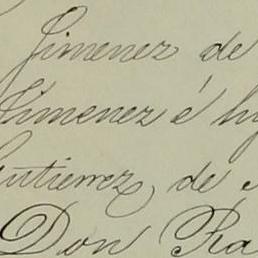 Jimenez de
Jimenez é
Gutierrez, de
Don